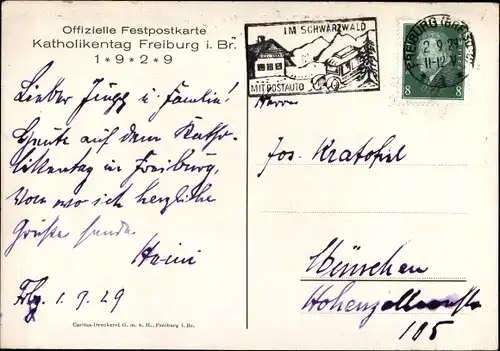 Offizielle Festpostkarte
Katholikentag Freiburg i. Br.
1*9*2*9
Lieber Jupp u. Familie!
Heute auf dem Katho-
likentag in Freiburg,
von wo ich herzliche
Grüße sende
Heini
Frbg. 1.9.29
Caritas-Druckerei G. m. b. H., Freiburg i. Br.
IM SCHWARZWALD
MIT POSTAUTO
FREIBURG (BREISGAU)
2.9.29
11-12 V
8 8
Herrn
Jos. Kratofiel
München
Hohenzollernstr
105